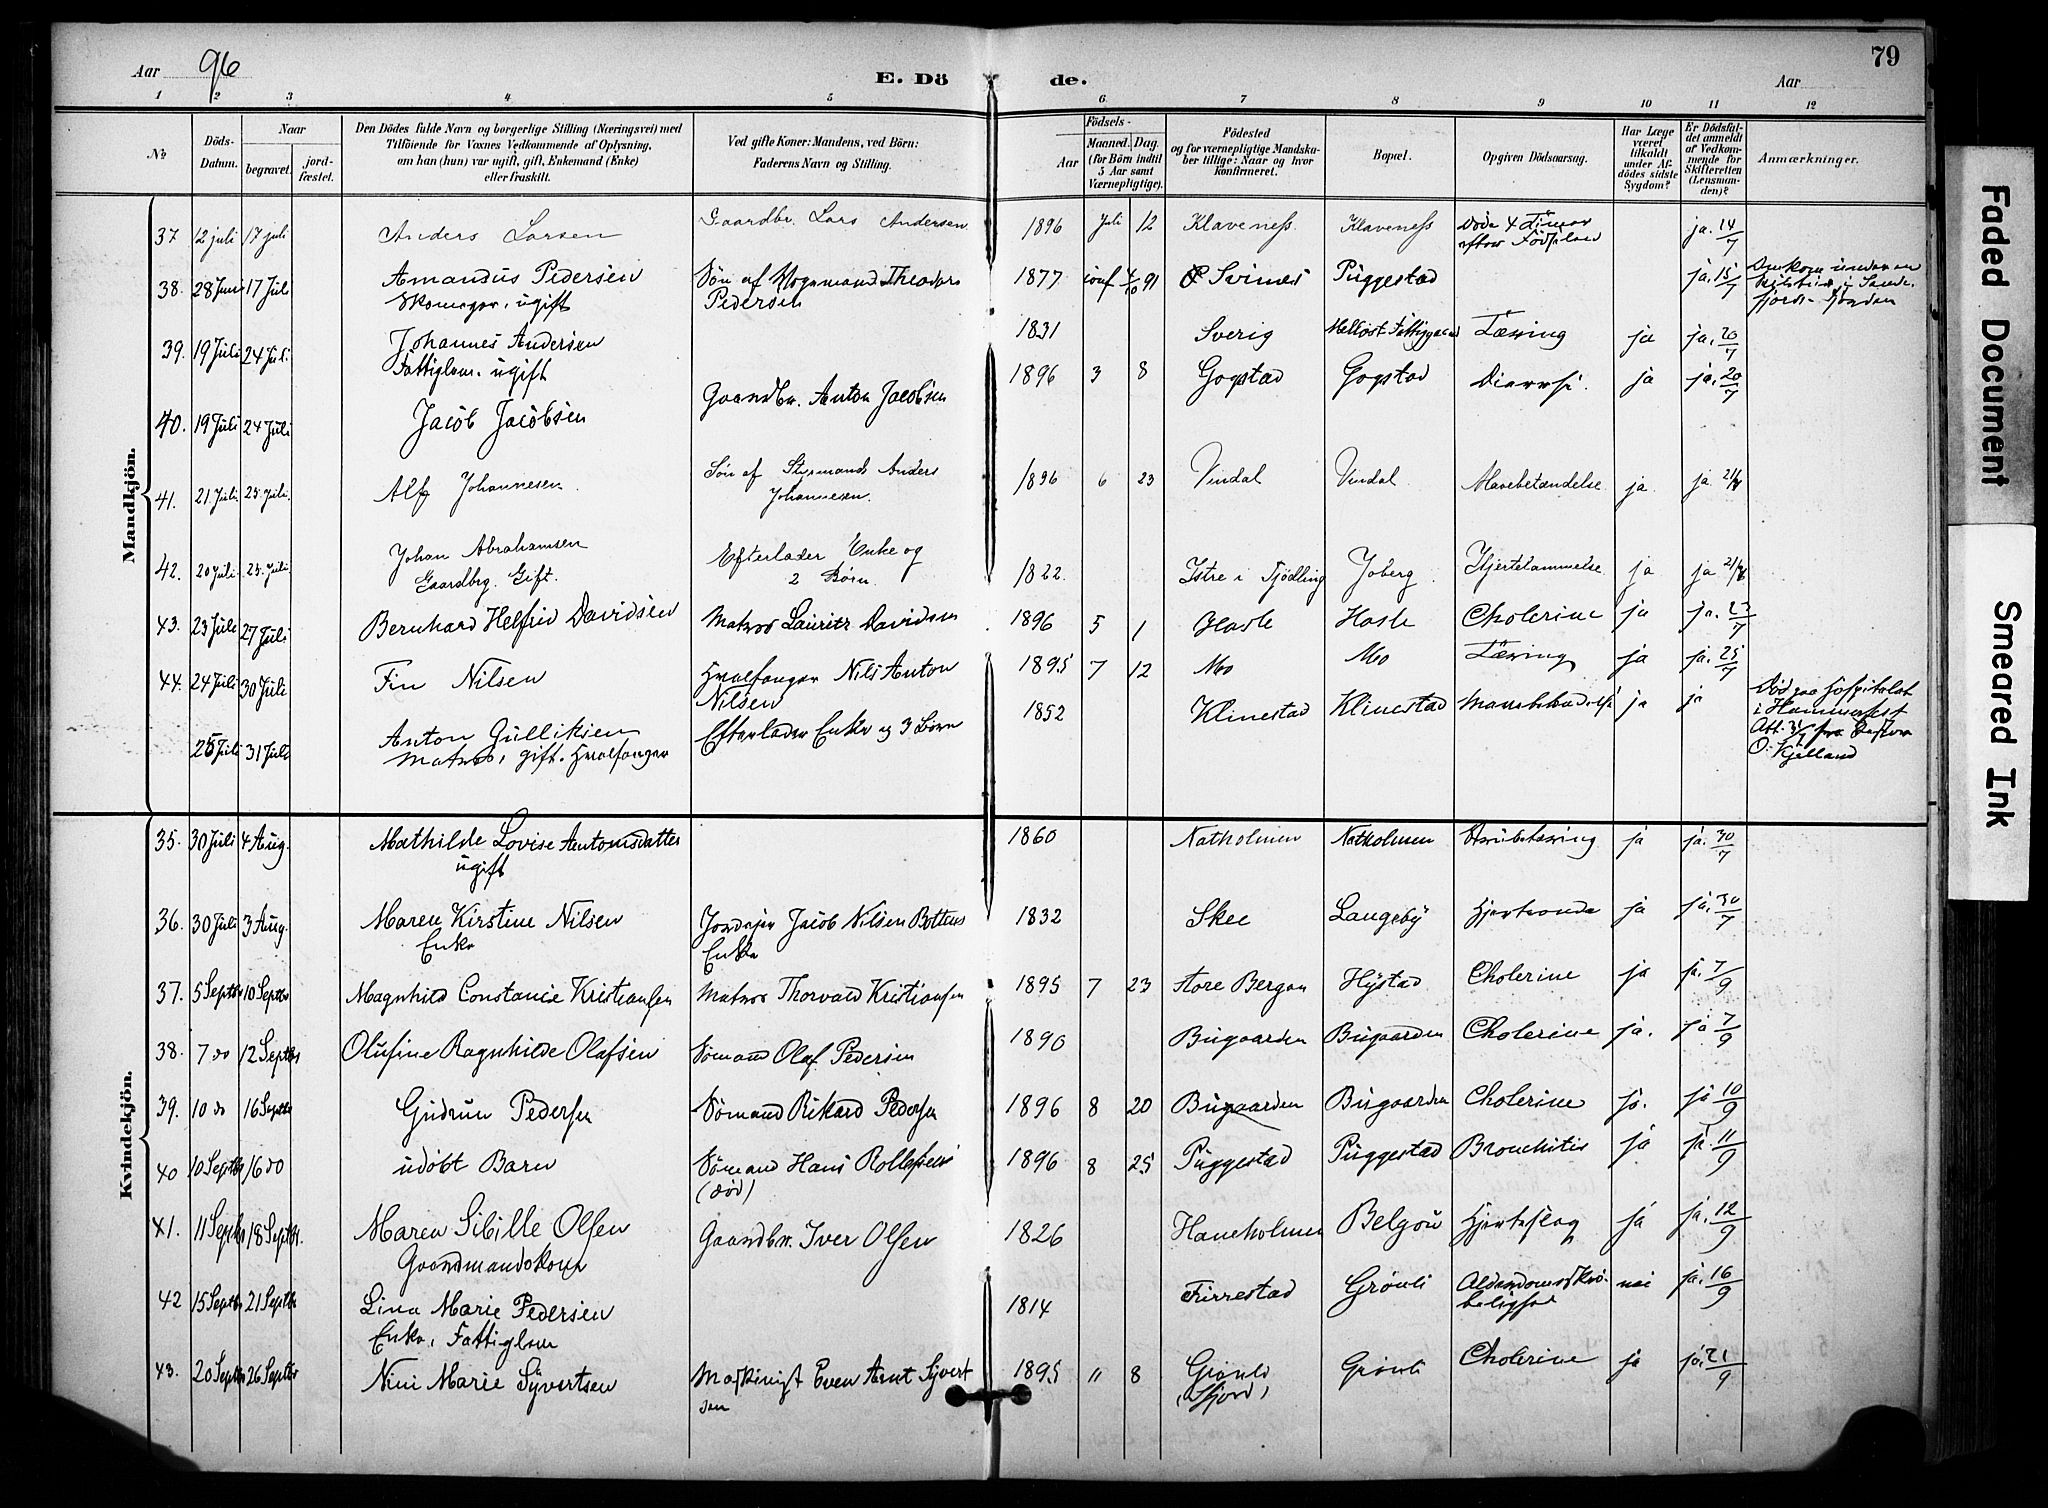 Aar 96
E. Dö de.
Aar
79
1 2 3 4 5 6 7 8 9 10 11 12
No
Döds-Datum.
Naar
begravet.
jord-fæstet.
Den Dödes fulde Navn og borgerlige Stilling (Næringsvei) med
Tilföiende for Voxnes Vedkommende af Oplysning,
om han (hun) var ugift, gift, Enkemand (Enke)
eller fraskilt.
Ved gifte Koner: Mandens, ved Börn:
Faderens Navn og Stilling.
Födsels-
Aar
Maaned. Dag.
(for Börn indtil
5 Aar samt
Værnepligtige).
Födested
og for værnepligtige Mandska-
ber tillige: Naar og hvor
konfirmeret.
Bopæl.
Opgiven Dödsaarsag.
Har Læge
været
tilkaldt
under Af-
dödes sidste
Sygdom?
Er Dödsfal-
det anmeldt
af Vedkom-
mende for
Skifteretten
(Lensman-
den)?
Anmærkninger.
Mandkjön.
37 12 juli 17 juli Anders Larsen Gaardbr. Lars Andersen 1896 Juli 12 Klaveness Klaveness Döde 4 Timer efter Födselen ja. 14/7
38. 28 Juni 17 Juli Amandus Pedersen Son af Theodor 1877 conf 91 Svines Puggestad ja, 15/7
Skomager, ugift Pedersen
39. 19 Juli 24 Juli Johannes Andersen 1831 Sverig Tæring ja ja, 20/7
Fattiglem. ugift
40. 19 Juli 24 Juli Jacob Jacobsen Gaardbr. Anton Jacobsen 1896 3 8 Gogstad Gogstad ja ja. 20/7
41. 21 Juli 25 juli. Alf Johannesen Sön af Styrmand Anders Johannesen. 1896 6 23 Vindal Vindal Mavebetændelse ja. ja
42. 20 Juli 25. Juli. Johan Abrahamsen Efterlader Enke og 2 Börn. 1822. Istre i Tjödling Joberg. Hjertelammelse ja ja
Gaardbrg. Gift.
43. 23 Juli 27 Juli Bernhard Helfrid Davidsen Matros Lauritz Davidsen 1896 5 1 Hasle Hasle Cholerine ja ja. 23/7
44. 24 Juli 30 Juli Fin Nilsen Hvalfanger Nils Anton Nilsen 1895 7 12 Mo Mo Tæring ja ja. 25/7
25 Juli 31 Juli Anton Gulliksen Efterlader Enke og 3 Börn 1852 Klinestad Klinestad ja ja Död paa Hospitalet
Matros, gift. Hvalfanger i Hammerfest
Att. 31/7 fra Pastor
O. Kjelland
Kvindekjön.
35. 30 Juli 4 Aug. Mathilde Lovise Antonsdatter 1860 Natholmen Natholmen Strubetæring ja ja. 30/7
ugift
36. 30 Juli 3 Aug. Maren Kirstine Nilsen Jordejer Jacob Nilsen 1832 Skee Langeby Hjerteonde ja ja. 30/7
Enke Enke
37. 5 Septbr 10 Septbr Magnhild Constancie Kristiansen Matros Thorvald Kristiansen 1895 7 23 Store Bergan Hystad Cholerine ja ja. 7/9
38. 7 do 12 Septbr Olufine Ragnhilde Olafsen Sömand Olaf Pedersen 1890 Bugaarden Bugaarden Cholerine ja. ja 7/9
39. 10 do 16 Septbr Gudrun Pedersen Sömand Rikard Pedersen 1896 8 20 Bugaarden Bugaarden Cholerine ja. ja 10/9
40 10 Septbr 16 do udöbt Barn Sömand Hans (död) 1896 8 25 Puggestad Puggestad Bronchitis ja ja. 11/9
41. 11 Septbr 18 Septbr. Maren Sibille Olsen Gaardbr. Iver Olsen 1826 Haneholmen Belgau Hjerteslag ja ja. 12/9
Gaardmandskone
42 15 Septbr 21 Septbr Lina Marie Pedersen 1814 Furrestad Grönli nei ja. 16/9
Enke, Fattiglem
43. 20 Septbr 26 Septbr Nini Marie Syvertsen Maskinist Even Arnt Syvertsen 1895 11 8 Grönli (Sfjord) Grönli Cholerine ja ja, 21/9
Faded Document
Smeared Ink